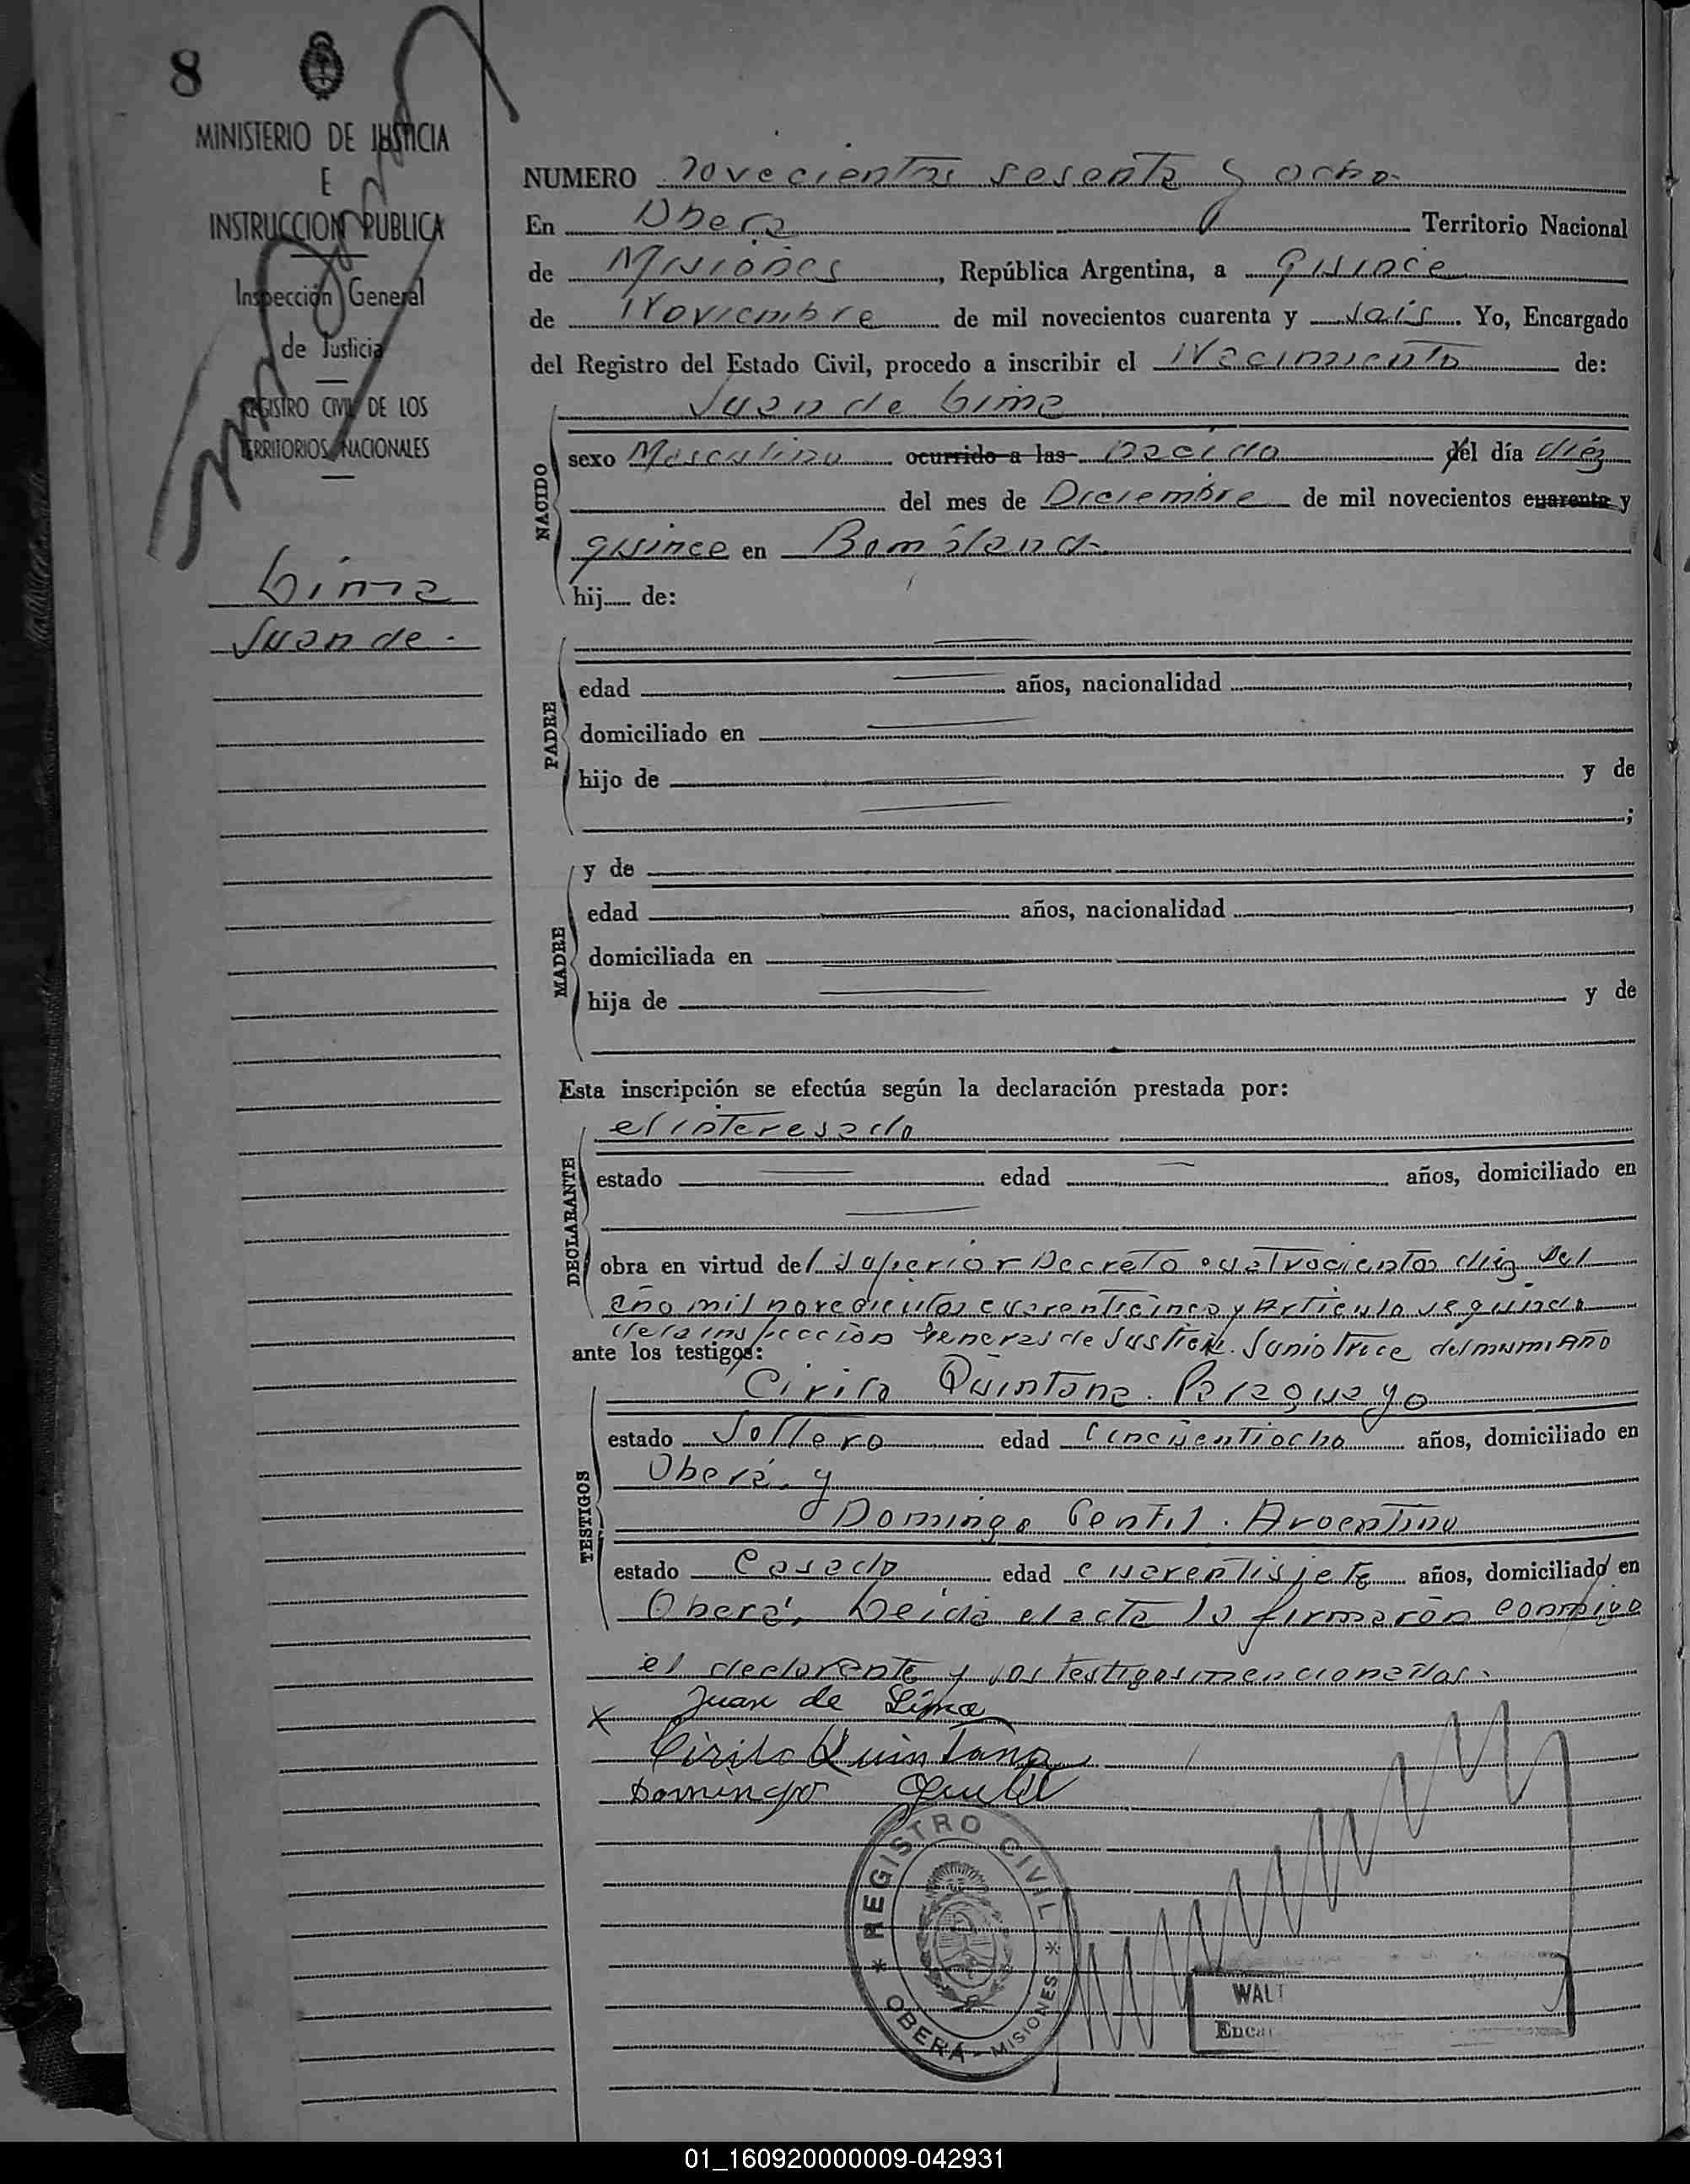 8
MINISTERIO DE JUSTICIA
E
INSTRUCCION PUBLICA
Inspección General
de Justicia
REGISTRO CIVIL DE LOS
TERRITORIOS NACIONALES
Lima
Juan de.
NUMERO novecientos sesenta y ocho
En Obera Territorio Nacional
de Misiones, República Argentina, a quince
de Noviembre de mil novecientos cuarenta y sais. Yo, Encargado
del Registro del Estado Civil, procedo a inscribir el Nacimiento de:
Juan de Lima
NACIDO
sexo Masculino ocurrido a las nacido del día diéz
del mes de Diciembre de mil novecientos cuarenta y
quince en Bompland.
hij de:
PADRE
edad años, nacionalidad
domiciliado en
hijo de y de
;
MADRE
y de
edad años, nacionalidad
domiciliada en
hija de y de
Esta inscripción se efectúa según la declaración prestada por:
DECLARANTE
el interesado
estado edad años, domiciliado en
obra en virtud del Superior Decreto cuatrocientos diez del
año mil novecientos cuarenticinco y Articulo segundo
de la inspeccion General de Justicia. Junio trece del mismo AÑO
ante los testigos:
TESTIGOS
Cirilo Quintana. Paraguayo
estado Soltero edad Cincuentiocho años, domiciliado en
Oberá y
Domingo Gentil. Argentino
estado Casado edad cuarentisiete años, domiciliado en
Oberá, Leida el acta la firmaron conmigo
el declarante y los testigos mencionados.
x Juan de Lima
Cirilo Quintana
Domingo Gentil
REGISTRO CIVIL
OBERÁ - MISIONES
WALT
Encar
01_160920000009-042931